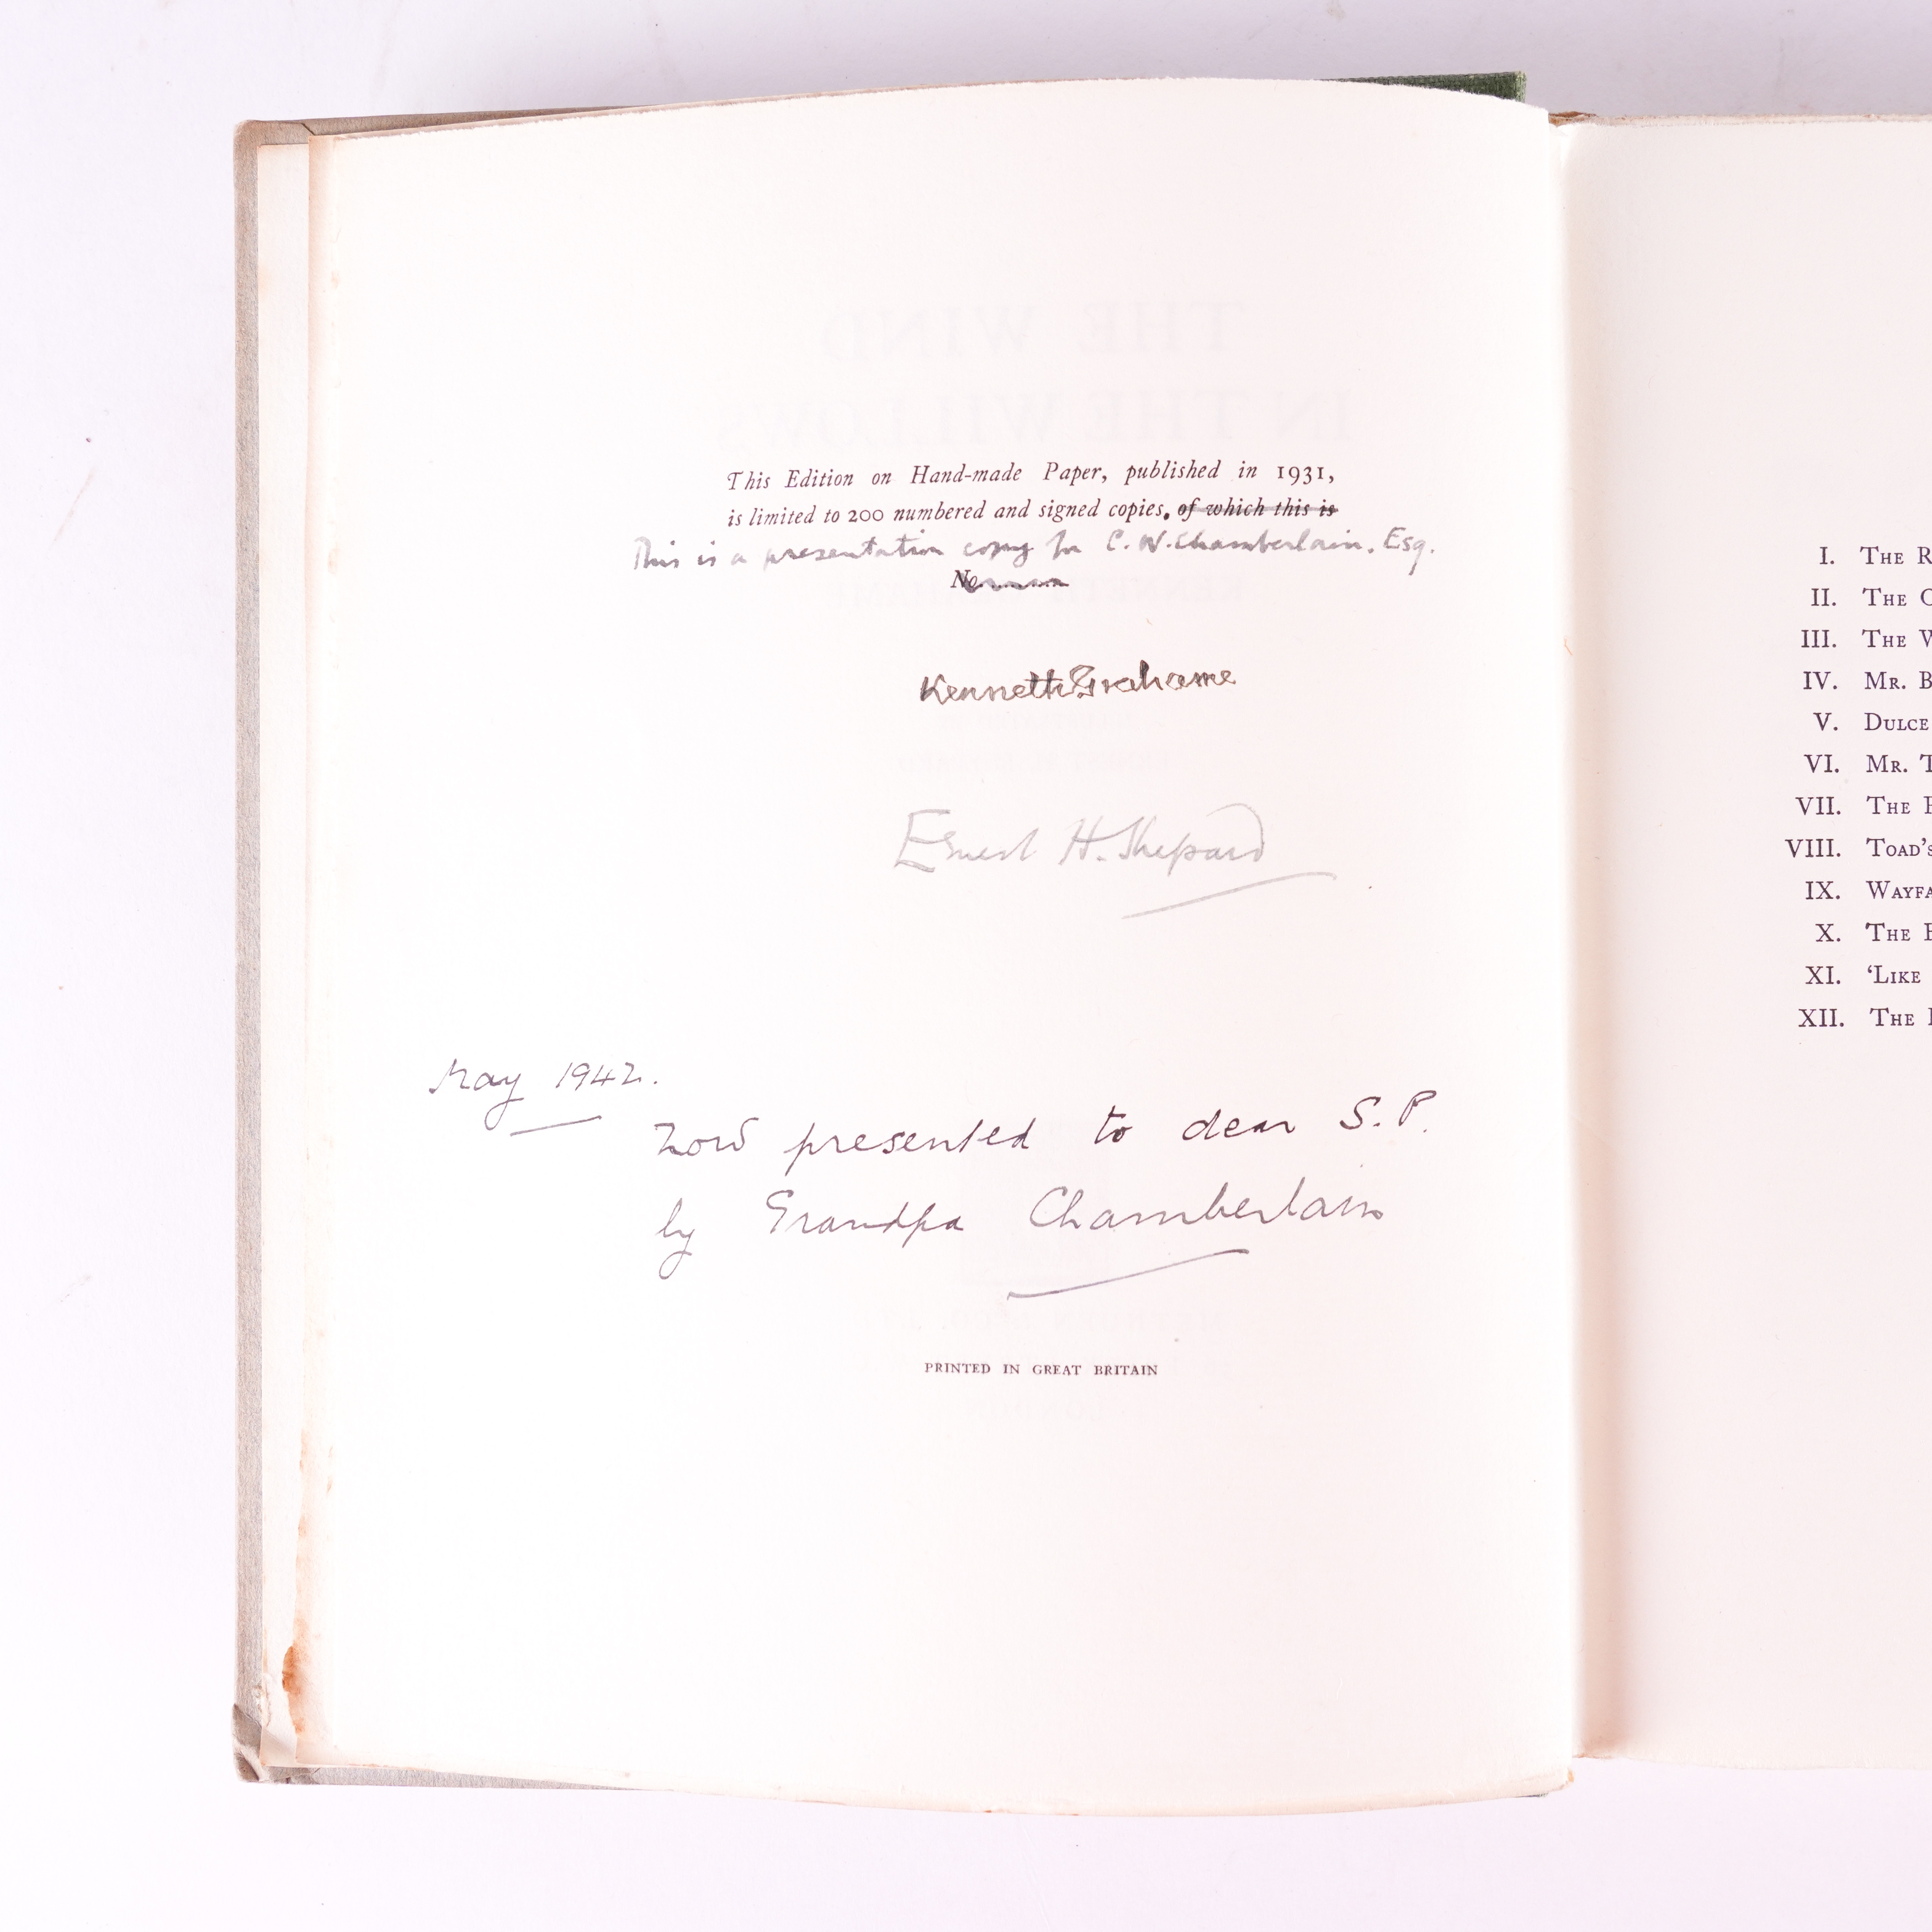 This Edition on Hand-made Paper, published in 1931,
is limited to 200 numbered and signed copies. of which this is
This is a presentation copy for C. W. Chamberlain. Esq.
No.
Kenneth Grahame
Ernest H. Shepard
May 1942.
Now presented to dear S. P.
by Grandpa Chamberlain
PRINTED IN GREAT BRITAIN
I. THE R
II. THE
III. THE
IV. MR. B
V. DULCE
VI. MR. T
VII. THE
VIII. TOAD'S
IX. WAYFA
X. THE
XI. 'LIKE
XII. THE
THE WIND
IN THE WILLOWS